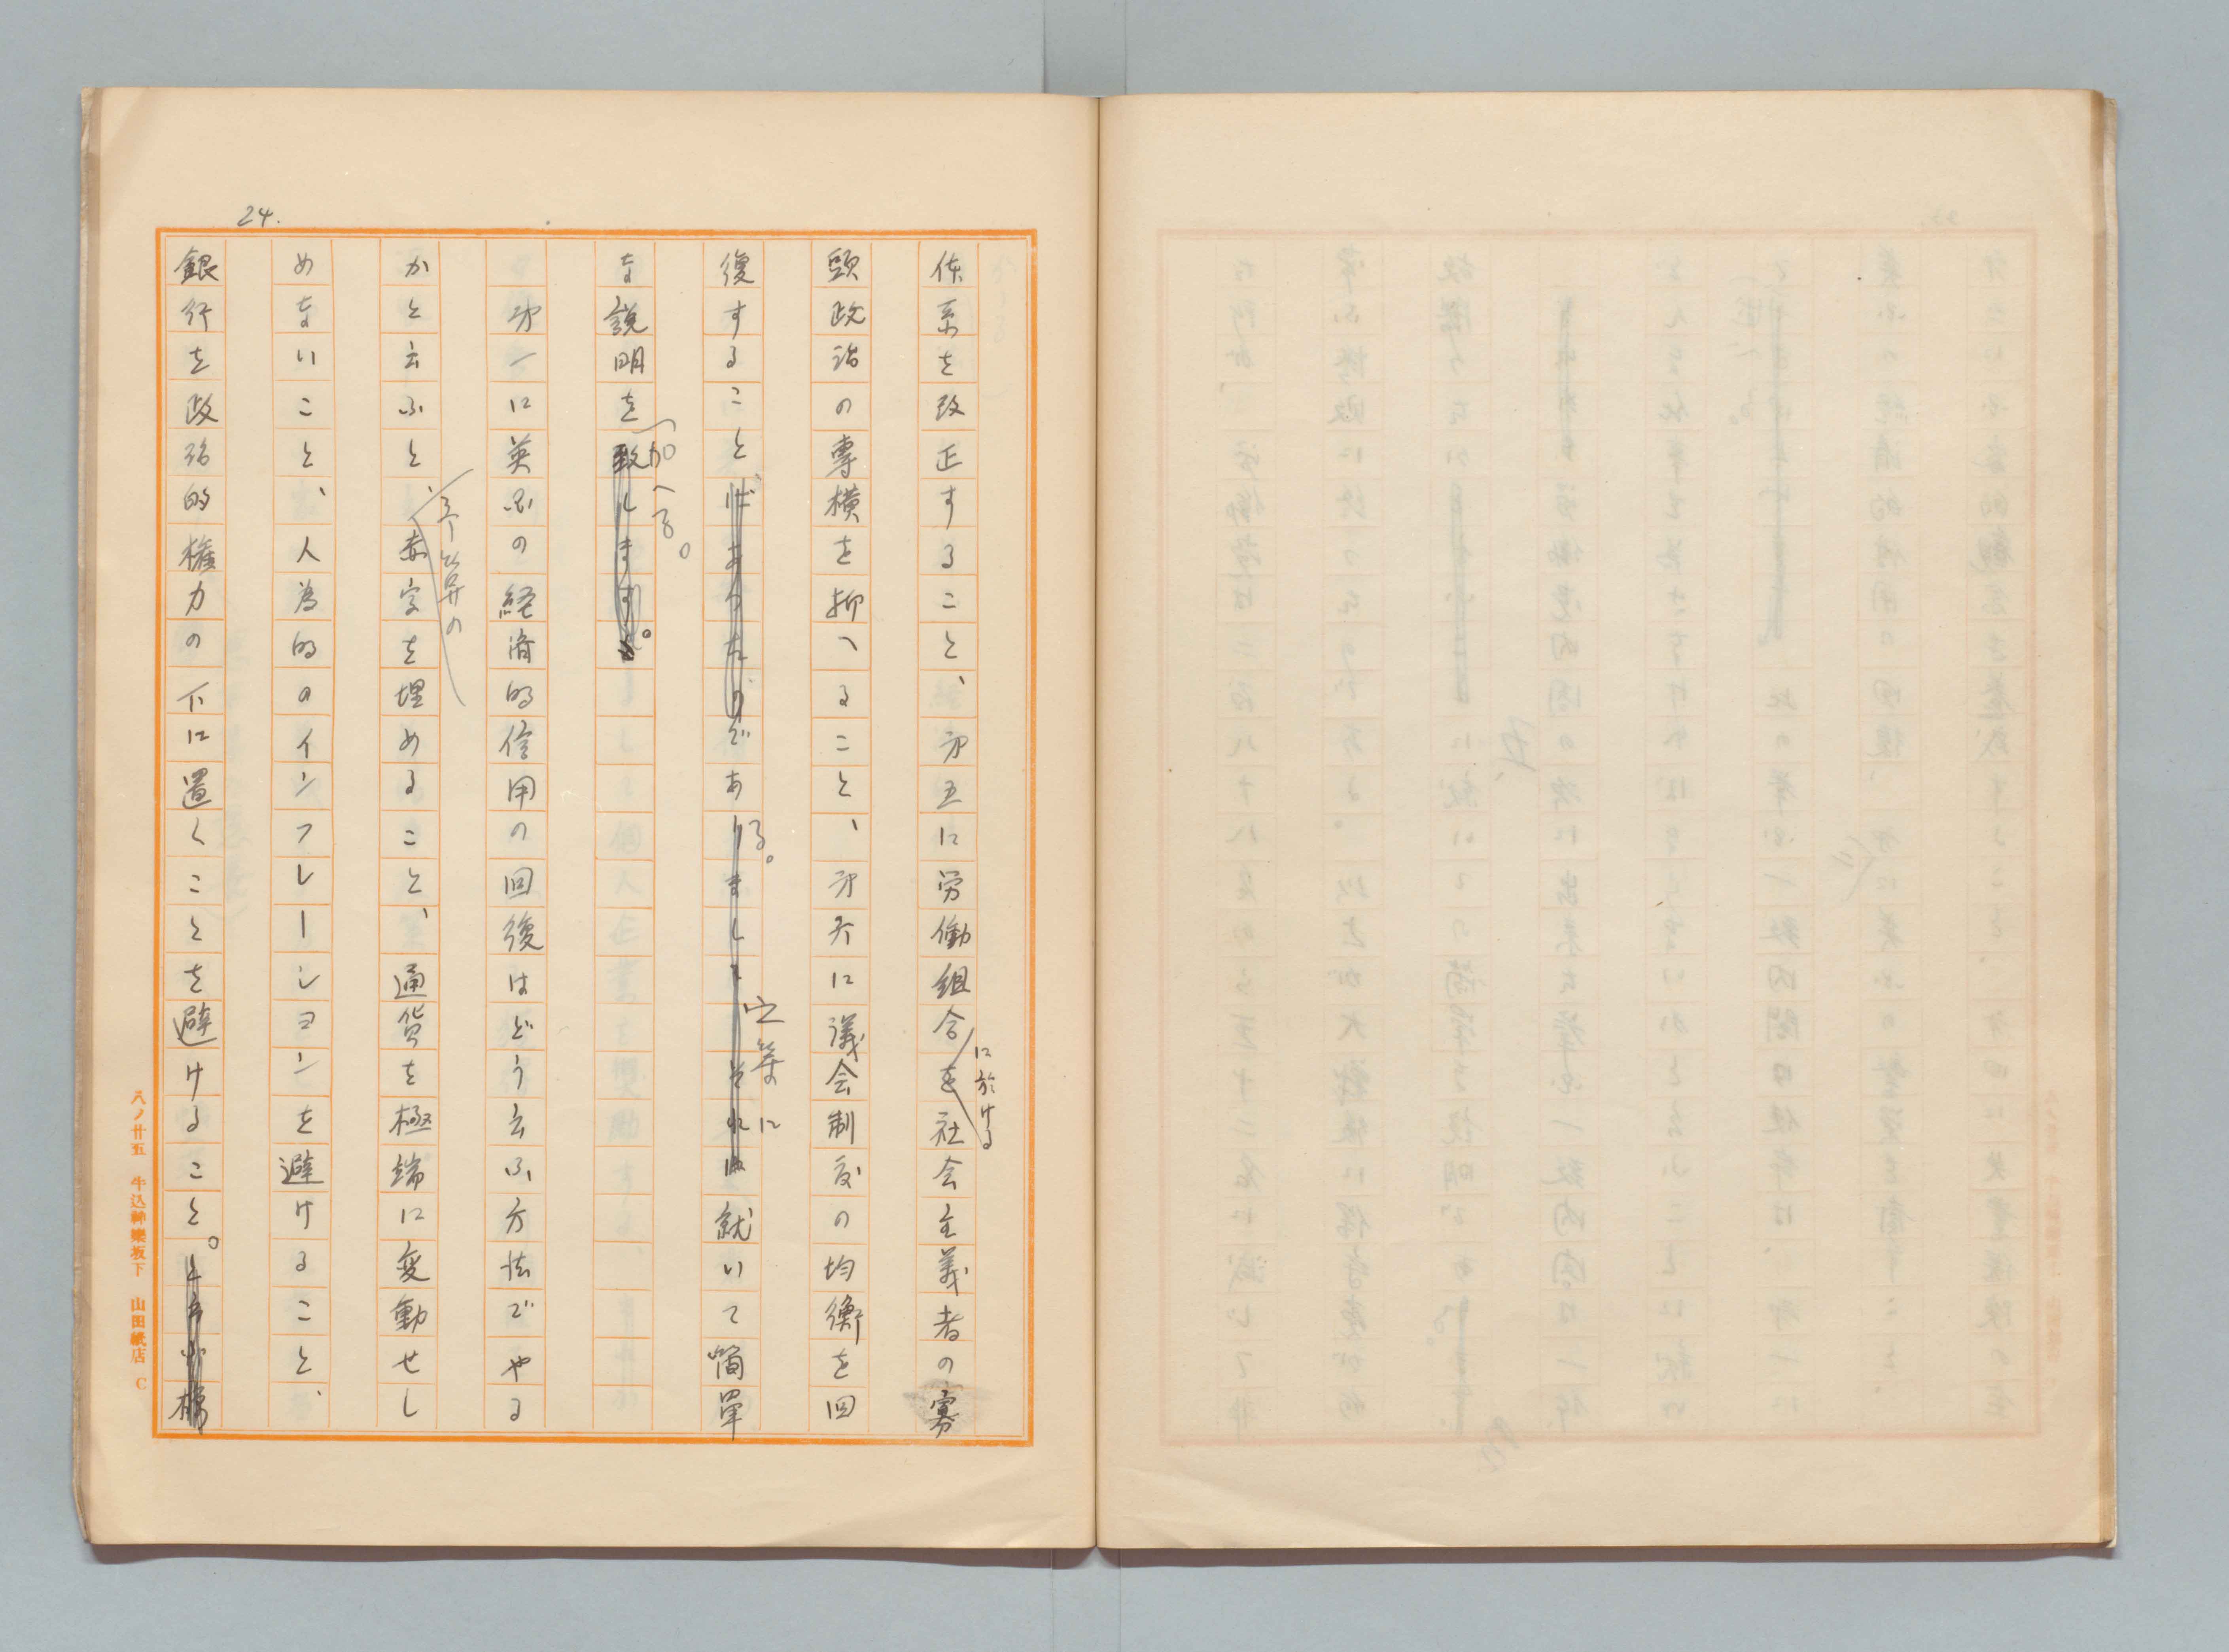 24.
体系を改正すること、第五に労働組合に於ける社会主義者の寡
頭政治の専横を抑へること、第六に議会制度の均衡を回
復すること、である。之等に就いて簡單
な説明を加へる。
第一に英国の経済的信用の回復はどう云ふ方法でやる
かと云ふと、予算の赤字を埋めること、通貨を極端に変動せし
めないこと、人為的のインフレーションを避けること、
銀行を政治的権力の下に置くことを避けること。
八ノ廿五 牛込神樂坂下 山田紙店 C